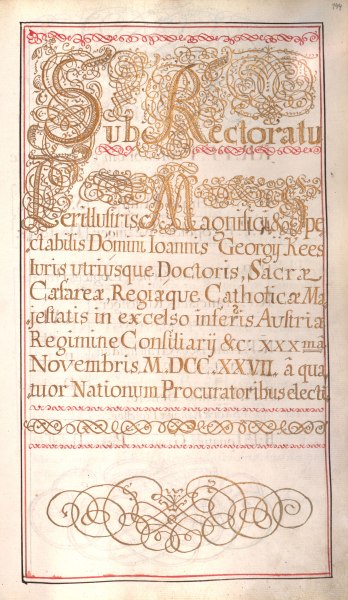 194
Sub Rectoratu
Perillustris Magnifici & Spe
ctabilis Domini Ioannis Georgij Kees
Iuris utriusque Doctoris, Sacræ
Cæsareæ, Regiæque Catholicæ Ma
jestatis in excelso infer: Austriæ
Regimine Consiliarij &c: XXXmâ
Novembris M.DCC.XXVII. â qua
tuor Nationum Procuratoribus electi.